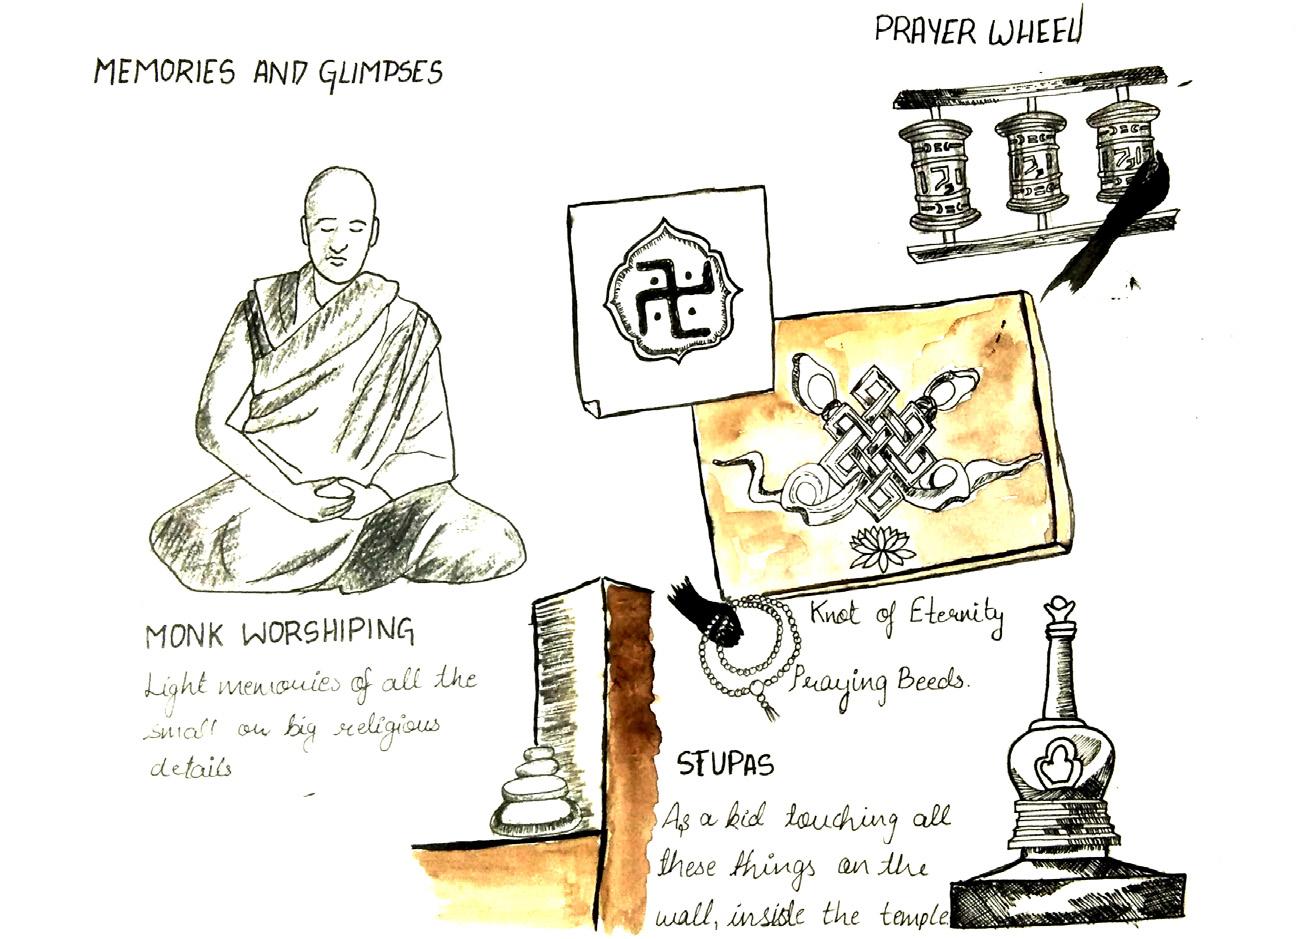 MEMORIES AND GLIMPSES
PRAYER WHEEL
MONK WORSHIPING
Light memories of all the
small or big religious
details
Knot of Eternity
Praying Beeds.
STUPAS
As a kid touching all
these things on the
wall, inside the temple